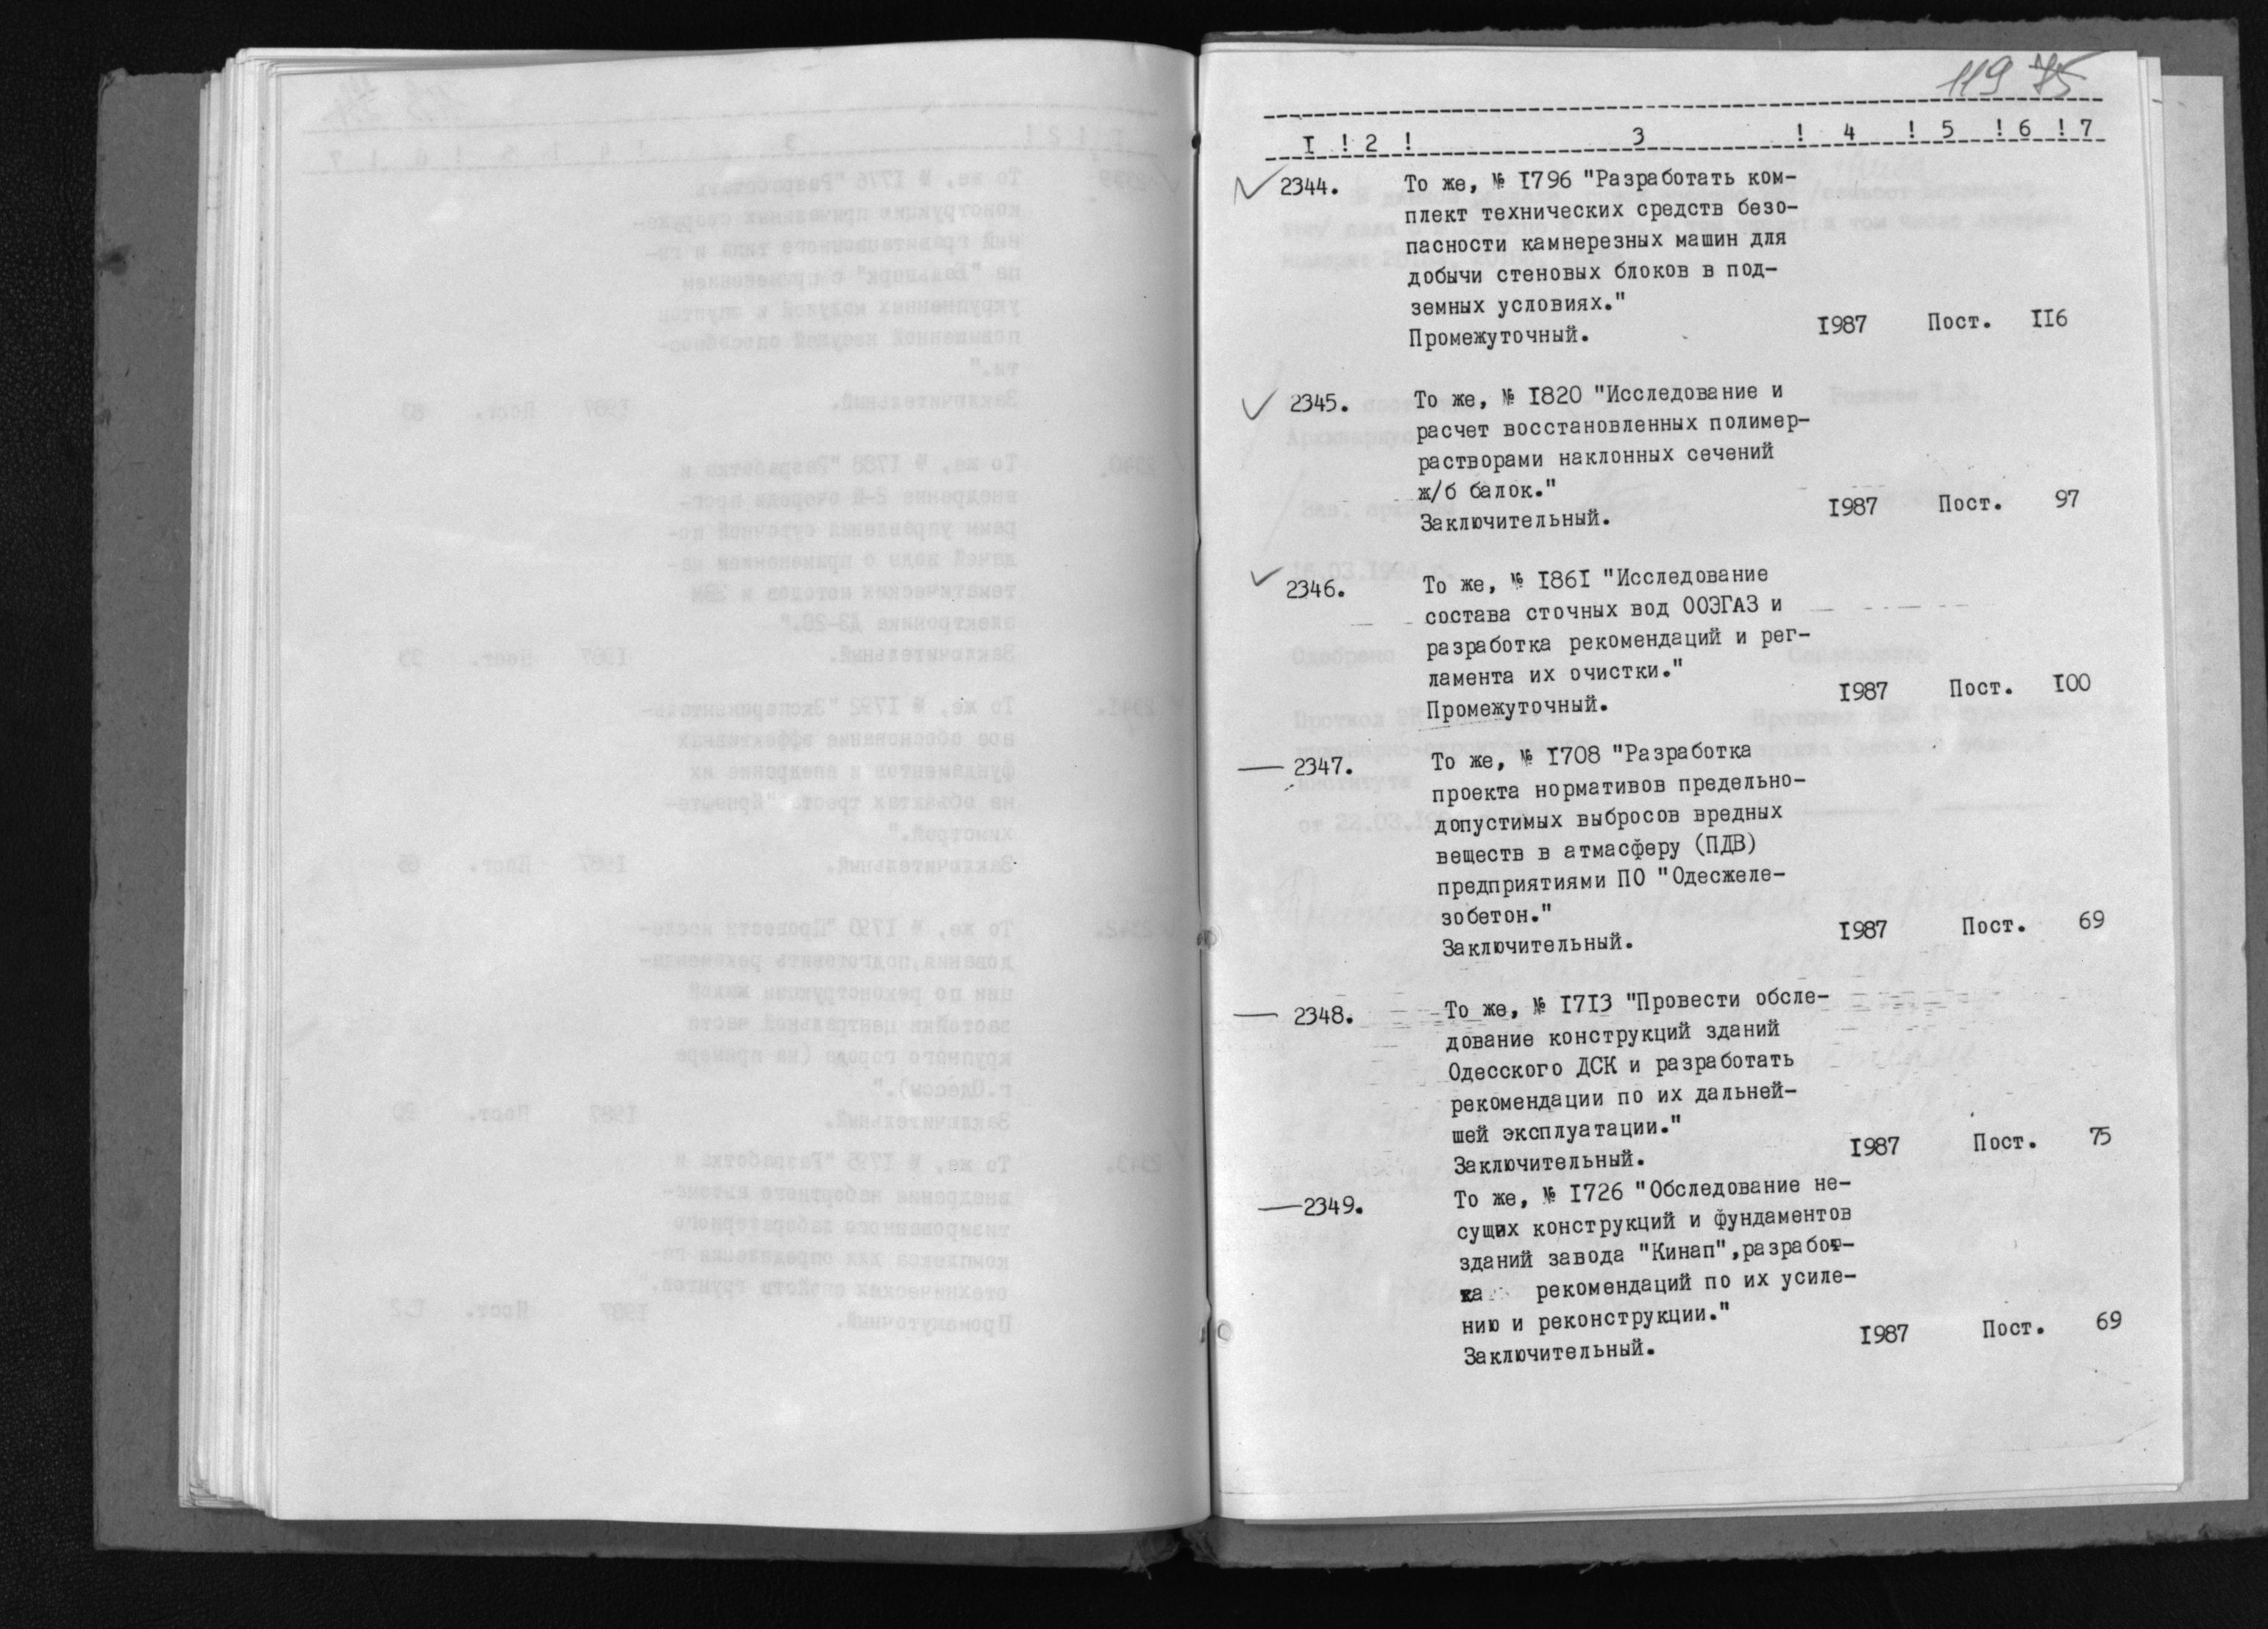 119 75
I ! 2 ! 3 ! 4 ! 5 ! 6 ! 7
2344. То же, № I796 "Разработать ком-
плект технических средств безо-
пасности камнерезных машин для
добычи стеновых блоков в под-
земных условиях."
Промежуточный. I987 Пост. II6
2345. То же, № I820 "Исследование и
расчет восстановленных полимер-
растворами наклонных сечений
ж/б балок."
Заключительный. I987 Пост. 97
2346. То же, № I86I "Исследование
состава сточных вод ООЭГАЗ и
разработка рекомендаций и рег-
ламента их очистки."
Промежуточный. I987 Пост. I00
2347. То же, № I708 "Разработка
проекта нормативов предельно-
допустимых выбросов вредных
веществ в атмасферу (ПДВ)
предприятиями ПО "Одесжеле-
зобетон."
Заключительный. I987 Пост. 69
2348. То же, № I7I3 "Провести обсле-
дование конструкций зданий
Одесского ДСК и разработать
рекомендации по их дальней-
шей эксплуатации."
Заключительный. I987 Пост. 75
2349. То же, № I726 "Обследование не-
сущих конструкций и фундаментов
зданий завода "Кинап",разработ-
ка рекомендаций по их усиле-
нию и реконструкции."
Заключительный. I987 Пост. 69